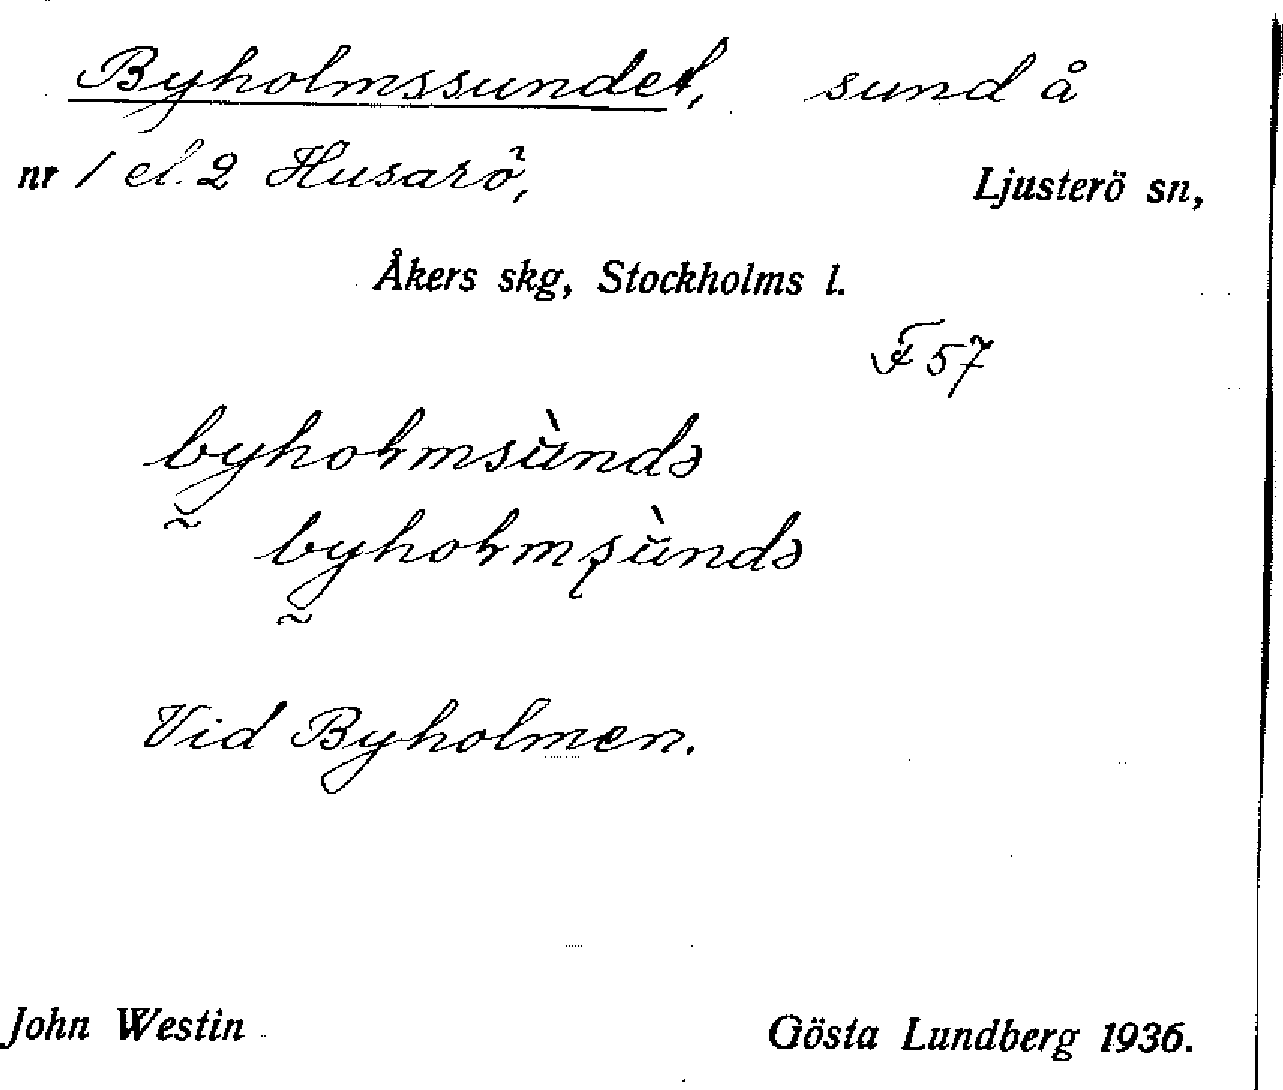 Byholmssundet, sund å
nr 1 el. 2 Husarö,
Ljusterö sn,
Åkers skg, Stockholms l.
F 57
byholmsùndə
byholmsùndə
Vid Byholmen.
John Westin
Gösta Lundberg 1936.